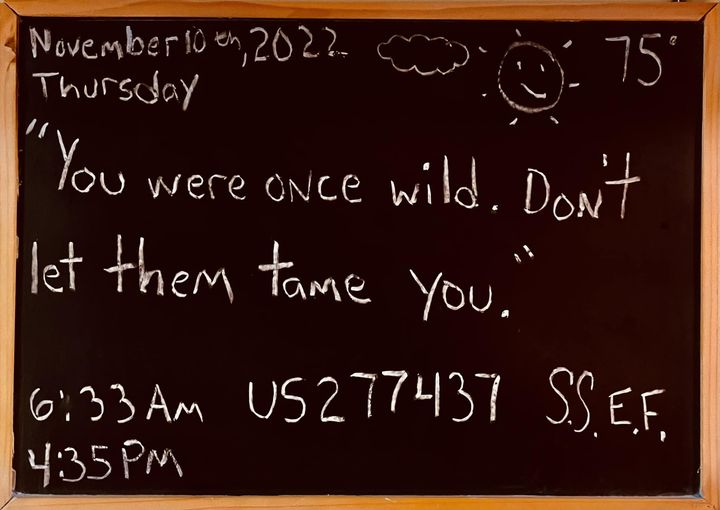 November 10th, 2022 75°
Thursday
"You were once wild. Don't
let them tame you."
6:33 Am US277437 S.S.E.F.
4:35 PM